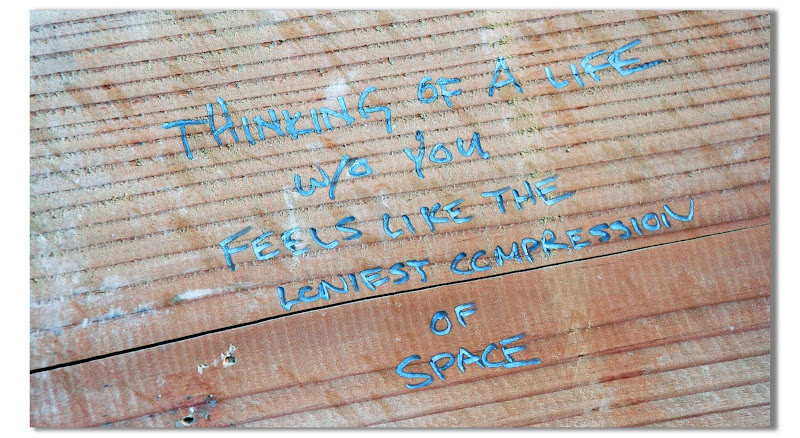 THINKING OF A LIFE
W/O YOU
FEELS LIKE THE
LONIEST COMPRESSION
OF
SPACE